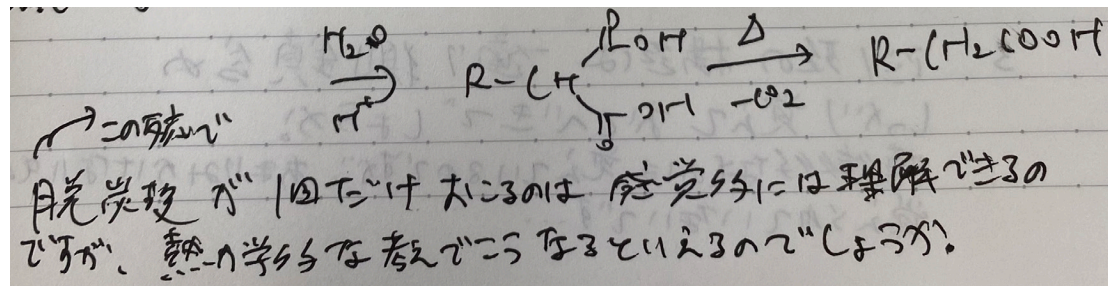 H₂O
H⁺
R-CH
OH
OH
Δ
-CO₂
R-CH₂COOH
→この段階で
脱炭酸が1回だけおこるのは感覚的には理解できるの
ですが、熱力学的な考えでこうなるといえるのでしょうか?